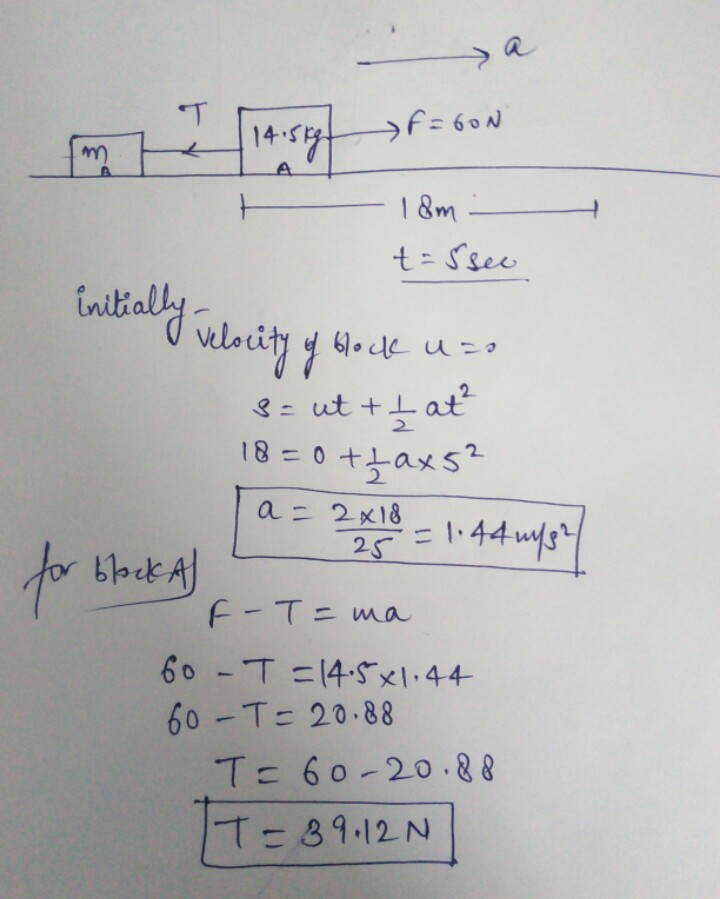 a
T
m
B
14.5kg
A
F = 60N
18m
t = 5sec
initially -
Velocity of block u = 0
s = ut + 1/2 at²
18 = 0 + 1/2 a x 5²
a = 2x18/25 = 1.44 m/s²
for block A
F - T = ma
60 - T = 14.5x1.44
60 - T = 20.88
T = 60 - 20.88
T = 39.12 N